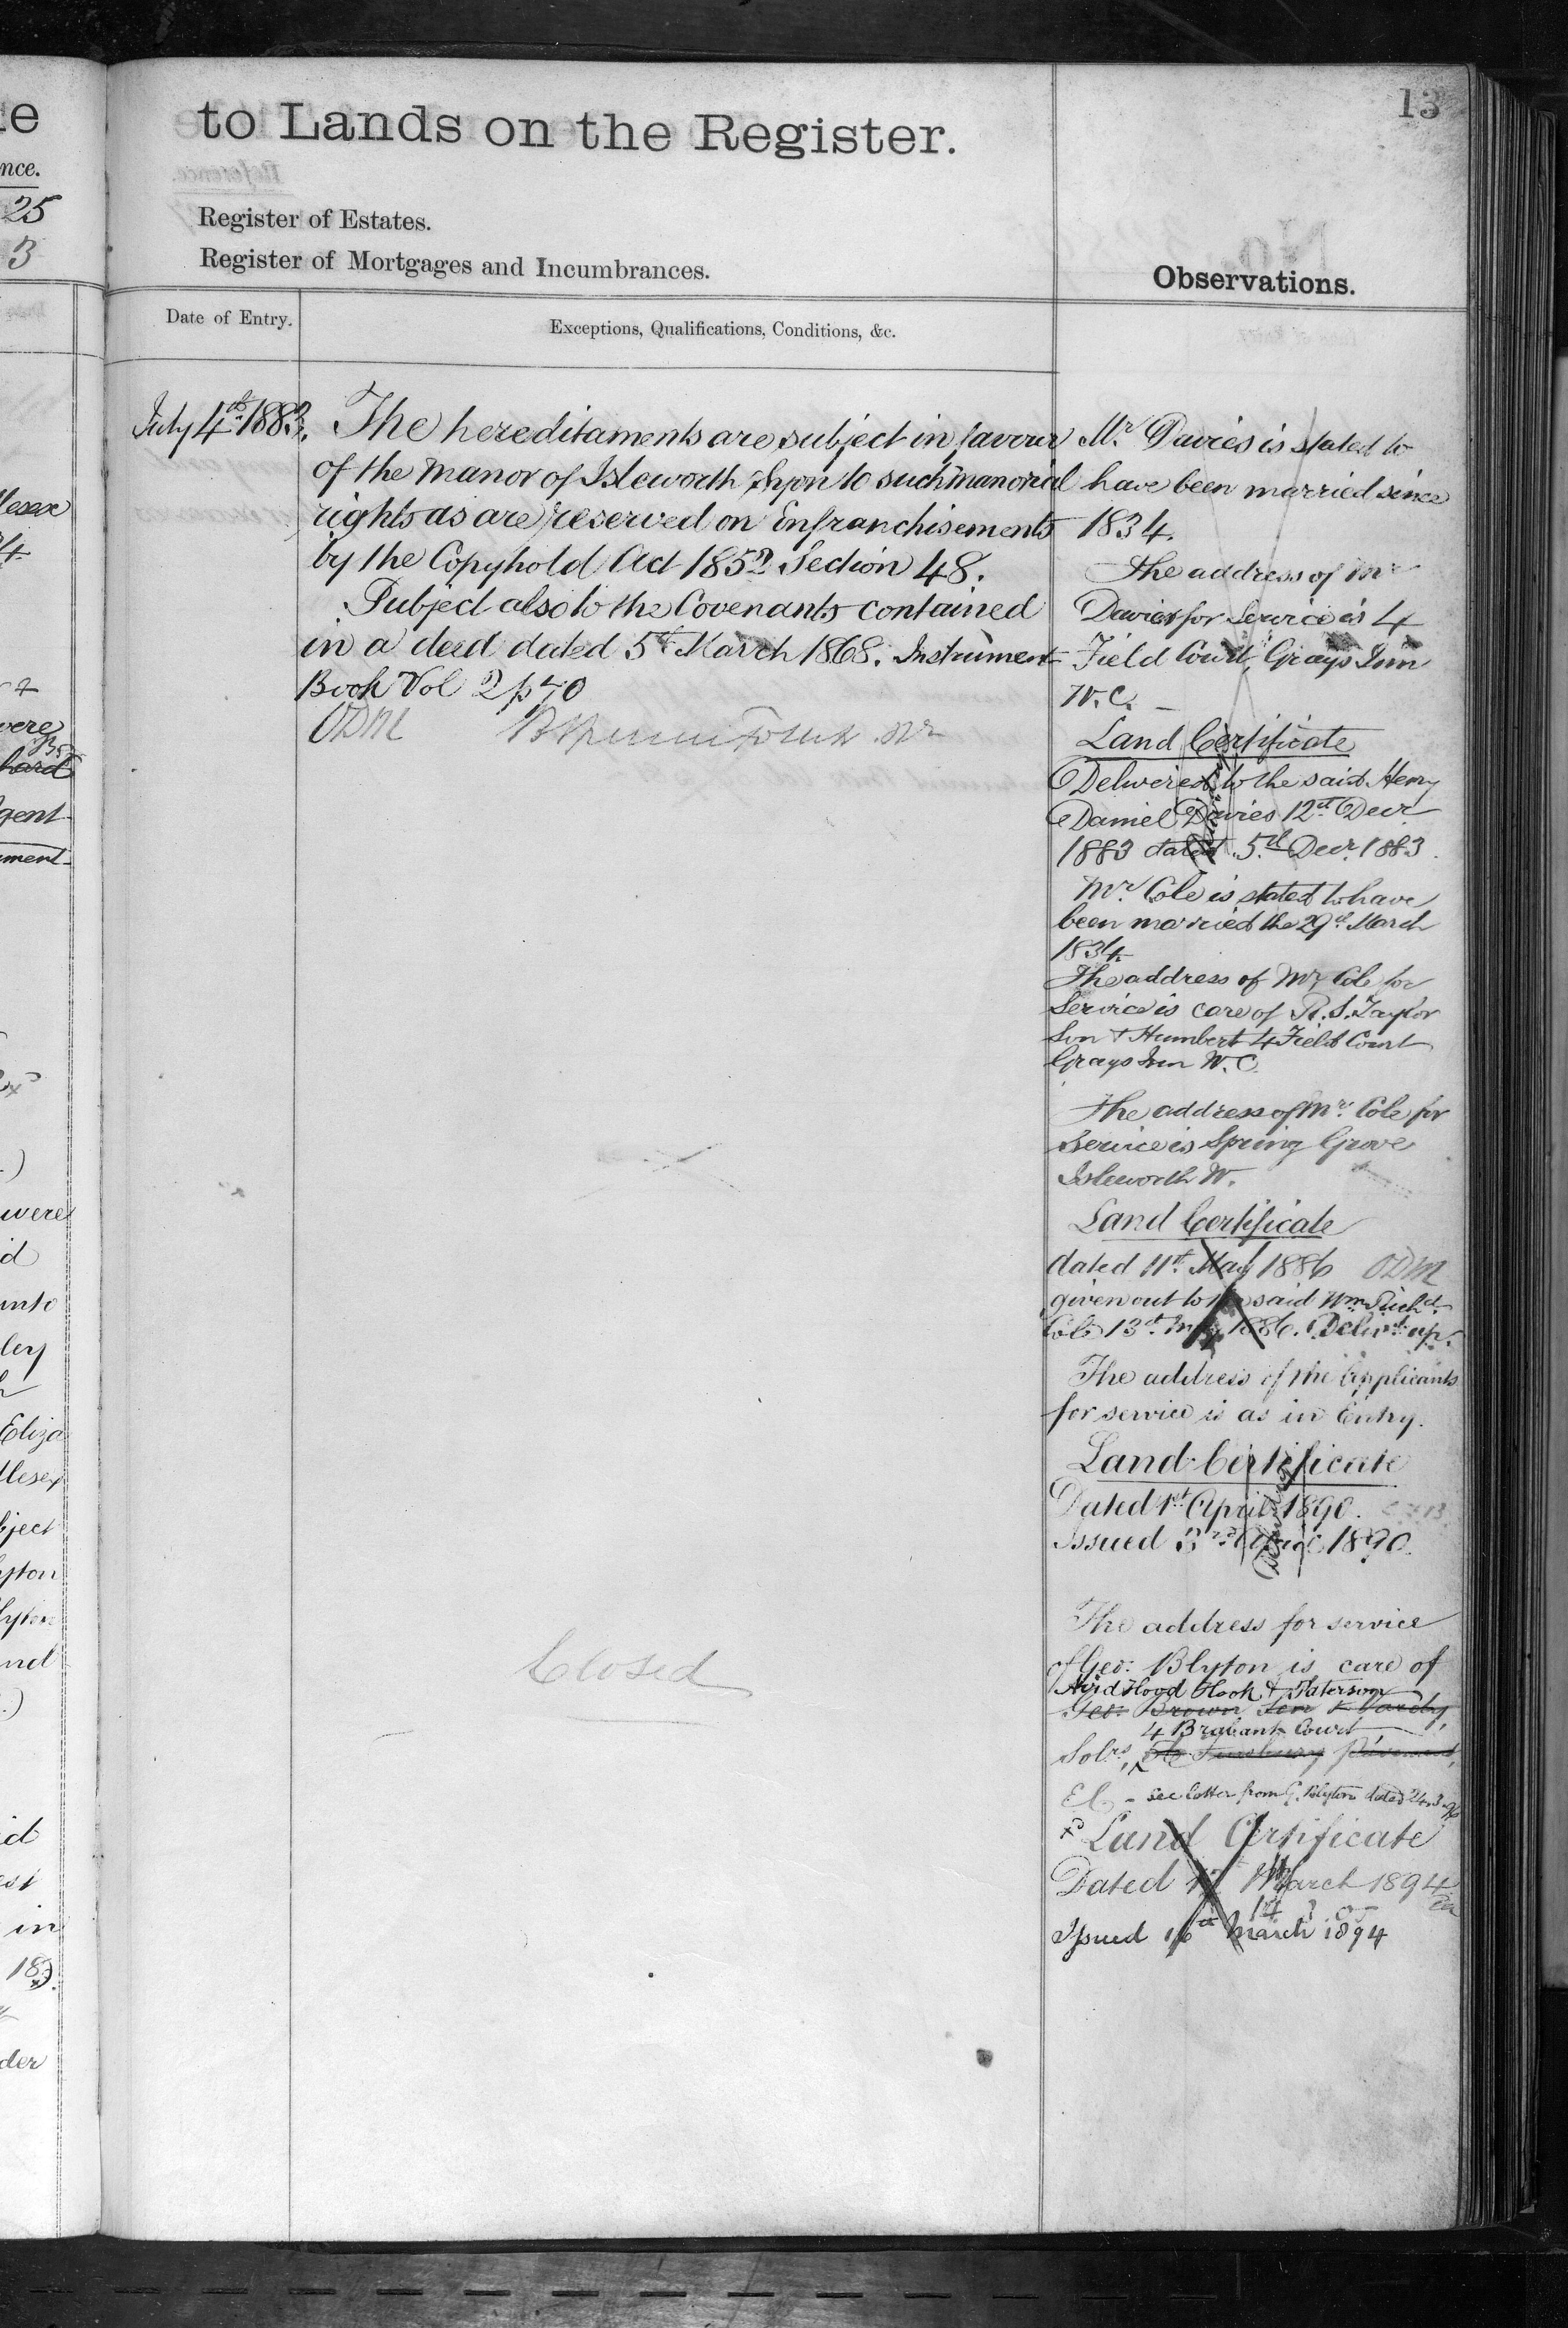 13
to Lands on the Register.
Register of Estates.
Register of Mortgages and Incumbrances.
Observations.
Date of Entry.
Exceptions, Qualifications, Conditions, &c.
July 4th 1883.
The hereditaments are subject in favour
of the Manor of Isleworth Syon to such manorial
rights as are reserved on Enfranchisements
by the Copyhold Act 1852 Section 48.
Subject also to the Covenants contained
in a deed dated 5th March 1868. Instrument
Book Vol 2 p 70
ODM
Closed
Mr. Davies is stated to
have been married since
1834.
The address of Mr
Davies for Service is 4
Field Court, Grays Inn
W.C.
Land Certificate
Delivered to the said Henry
Daniel Davies 12th Decr
1883 dated 5th Decr. 1883
Mr. Cole is stated to have
been married the 29th March
1834
The address of Mr Cole for
Service is care of R. S. Taylor
Son & Humbert 4 Field Court
Grays Inn W.C.
The address of Mr. Cole for
Service is Spring Grove
Isleworth W.
Land Certificate
dated 11th May 1886 ODM
given out to the said Wm Richd.
Cole 13th May 1886. Delivd up.
The address of the Applicants
for service is as in Entry.
Land Certificate
Dated 1st April 1890.
Issued 3rd April 1890.
The address for service
of Geo: Blyton is care of
Hook & Paterson
Geo: Brown Son & Vardy,
4 Brabant Court
Solrs, Finsbury Pavement,
EC - see letter from G. Blyton dated 24.3.96
Land Certificate
Dated March 1894
14
Issued 16th March 1894
nce.
25
3
4
were
gent
ment
were
d
unto
ley
Eliza
dlesex
bject
lyton
lyton
nd
id
est
in
18
der